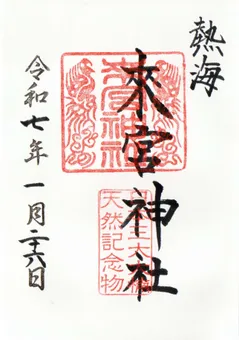 熱海
來宮神社
來宮神社
天然記念物
令和七年一月二十六日